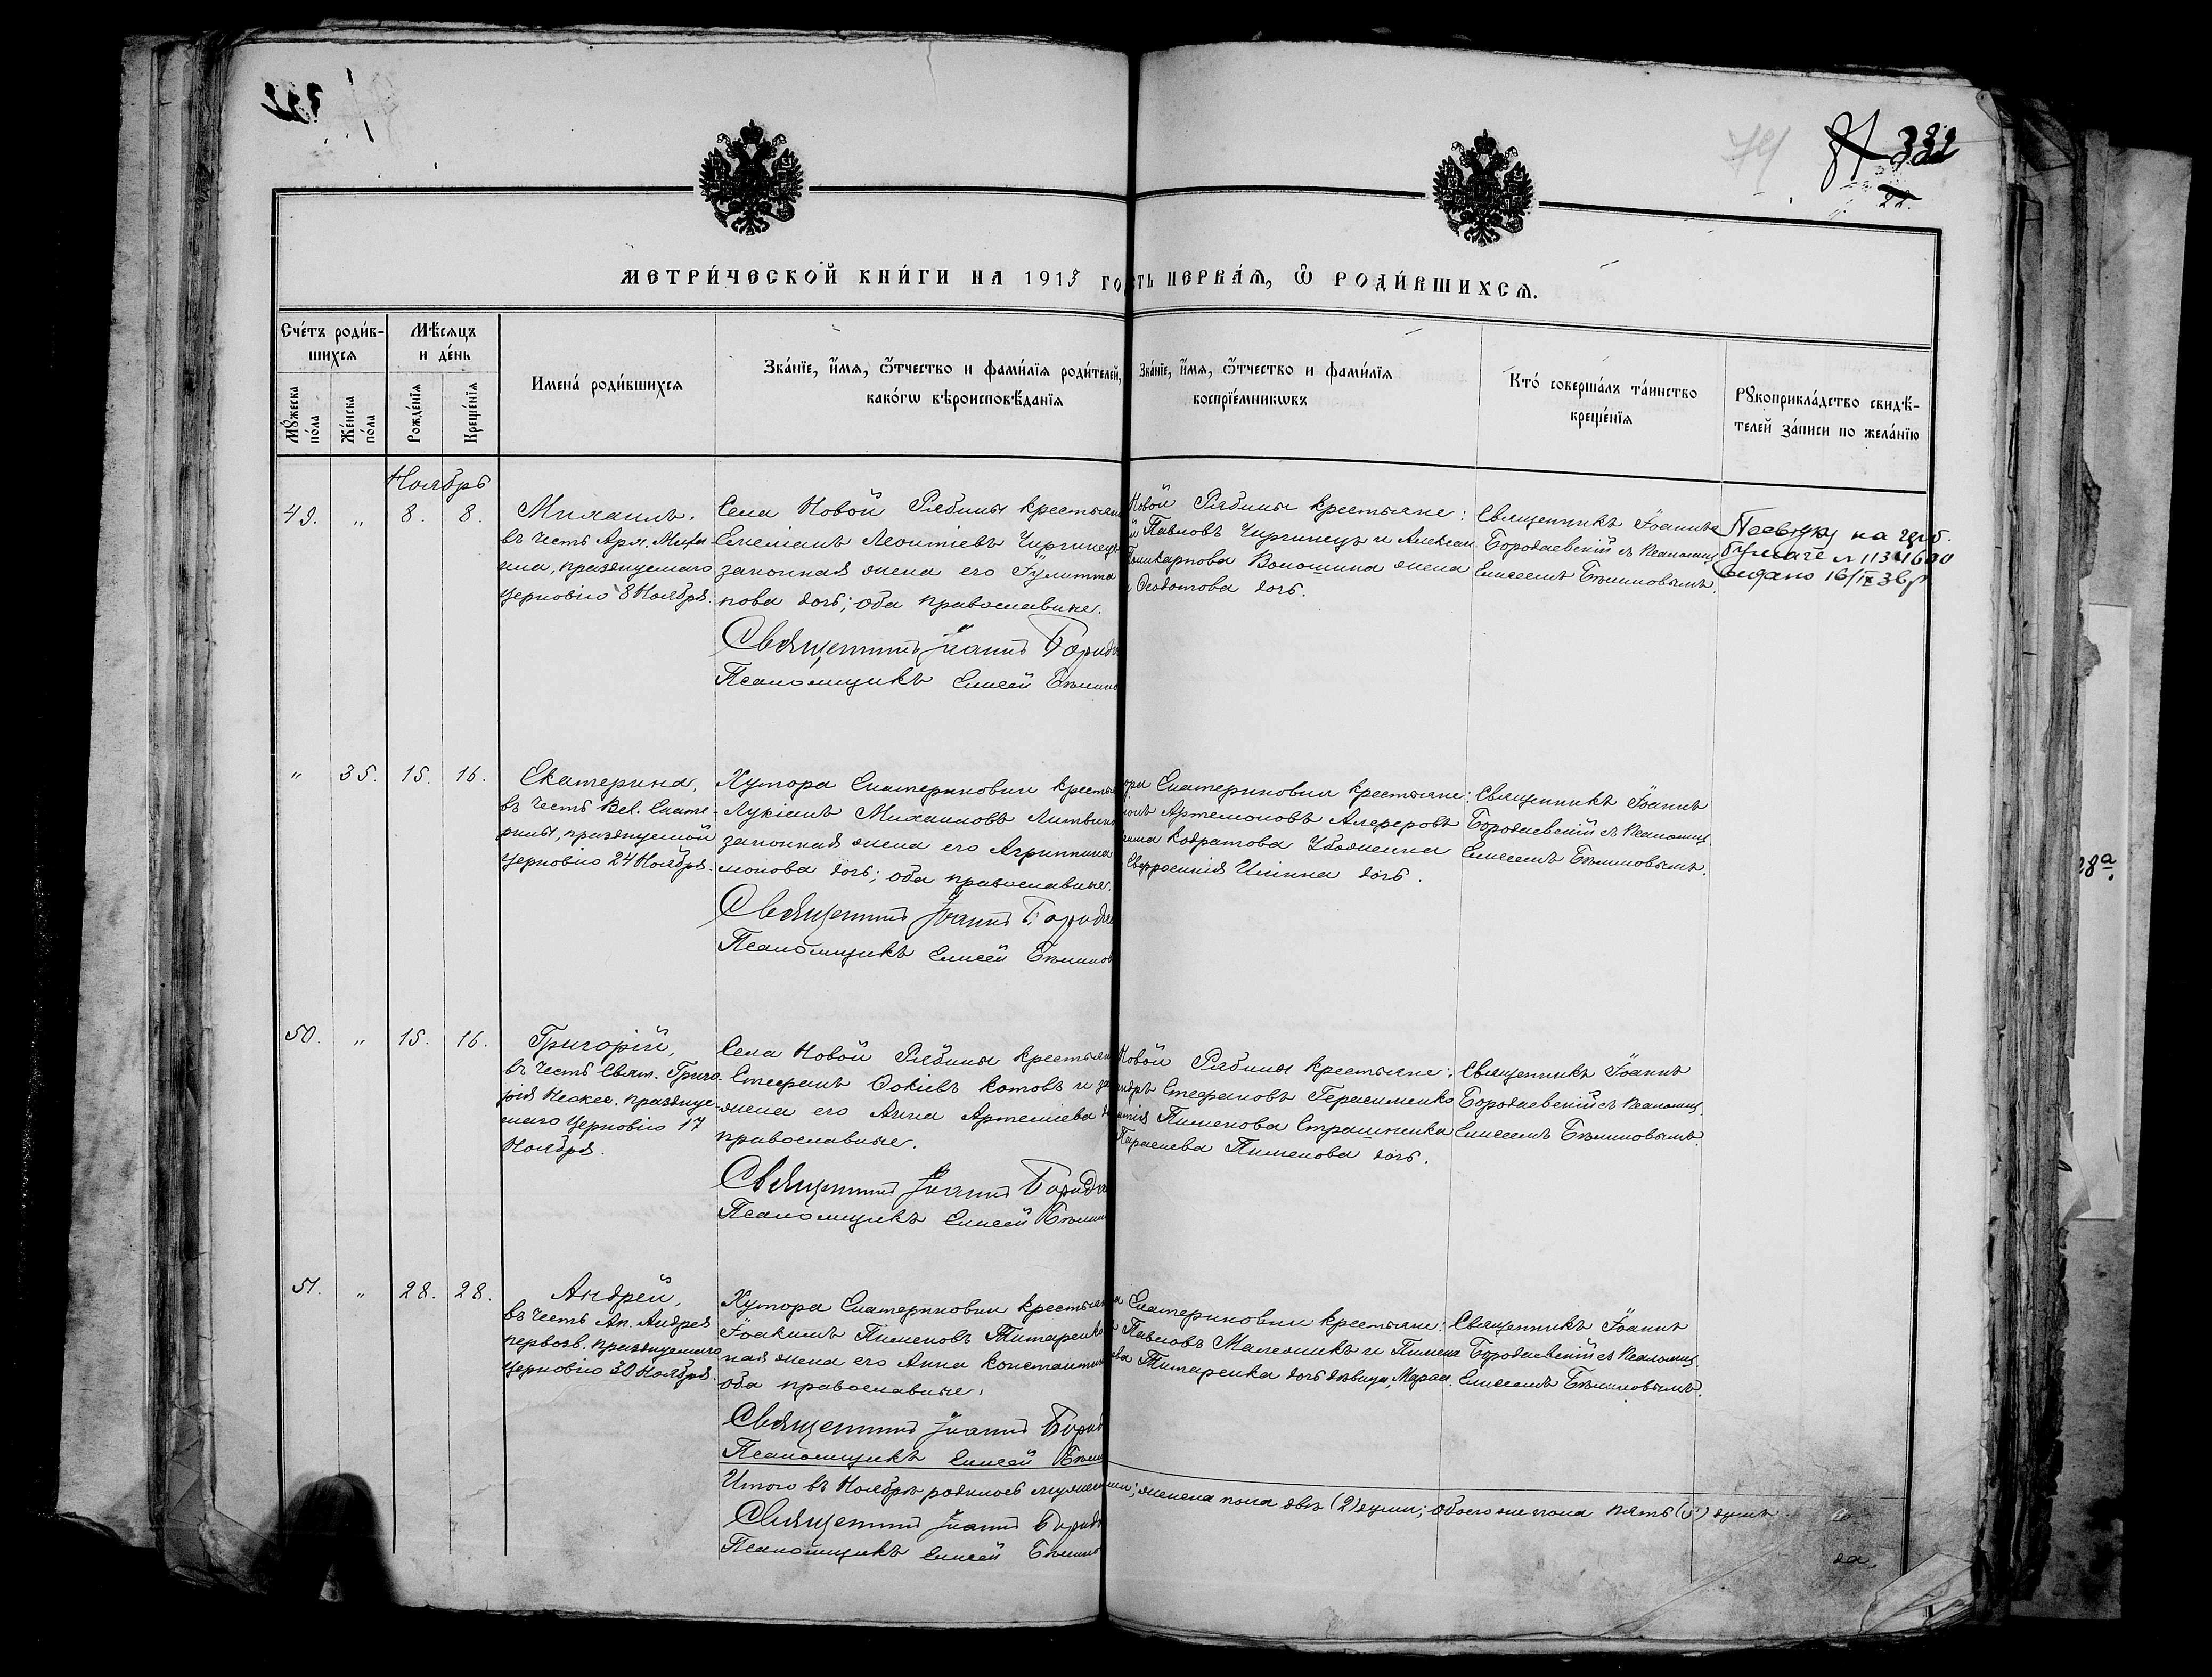 332
МЕТРИ́ЧЕСКОЙ КНИ́ГИ НА 1913 ГО
СТЬ ПЕРВА́Ѧ, Ѽ РОДИ́ВШИХСѦ.
Сче́тъ роди́в-
шихсѧ
Мꙋ́жеска по́ла
Же́нска по́ла
Мѣ́сяцъ
и де́нь
Рожде́нїѧ
Креще́нїѧ
Имена́ роди́вшихсѧ
Зва́нїе, и҆́мѧ, ѻ҆́тчество и фами́лїѧ роди́телей,
како́гѡ вѣроисповѣ́данїѧ
Зва́нїе, и҆́мѧ, ѻ҆́тчество и фами́лїѧ
воспрїе́мникѡвъ
Кто́ соверша́лъ та́инство
креще́нїѧ
Рꙋкоприкла́дство свидѣ́-
телей за́писи по жела́нїю
Ноябрь
49. „ 8. 8.
Михаилъ.
въ честь Арх. Миха
ила, празднуемаго
церковію 8 Ноября.
Села Новой Рябины крестьян
Емеліанъ Леонтіевъ Чиргинецъ
законная жена его Іулитта
пова дочь; оба православные.
Священникъ Іоаннъ Борода
Псаломщикъ Елисей Бѣлико
Новой Рябины крестьяне:
й Павловъ Чиргинецъ и Алексан
Поликарпова Волошина жена
Ѳеодотова дочь.
Священникъ Іоаннъ
Бородаевскій съ Псаломщ.
Елисеемъ Бѣликовымъ.
на герб.
бумаге № 1134680
выдано 16/IX 36 г
„ 35. 15. 16.
Екатерина,
въ честь Вел. Екате-
рины, празднуемой
церковію 24 Ноября.
Хутора Екатериновки кресть
Лукіанъ Михаиловъ Литвино
законная жена его Агриппина
монова дочь; оба православные.
Священникъ Іоаннъ Борода
Псаломщикъ Елисей Бѣликов
ора Екатериновки крестьяне:
Артемоновъ Алферовъ
Кодратова Убоженка
Евфросинія Ильина дочь.
Священникъ Іоаннъ
Бородаевскій съ Псаломщ.
Елисеемъ Бѣликовымъ.
50. „ 15. 16.
Григорій,
въ честь Свят. Григо-
рія Неокес. празднуе-
маго церковію 17
Ноября.
Села Новой Рябины крестьян
Стефанъ Фокіевъ Котовъ и за
жена его Анна Артеміева до
православные.
Священникъ Іоаннъ Борода
Псаломщикъ Елисей Бѣлик
Новой Рябины крестьяне:
андръ Стефановъ Герасименко
Пименова Страшненка
Параскева Пименова дочь.
Священникъ Іоаннъ
Бородаевскій съ Псаломщ.
Елисеемъ Бѣликовымъ.
51. „ 28. 28.
Андрей,
въ честь Ап. Андрея
первозв. празднуемаго
церковію 30 Ноября.
Хутора Екатериновки крестьян
Іоакимъ Пименовъ Титаренко
ная жена его Анна Константин
оба православные.
Священникъ Іоаннъ Бород
Псаломщикъ Елисей Бѣли
Екатериновки крестьяне:
Павловъ Малежикъ и Пимена
Титаренка дочь дѣвица, Марѳа.
Священникъ Іоаннъ
Бородаевскій съ Псаломщ.
Елисеемъ Бѣликовымъ.
Итого въ Ноябрѣ родилось мужеск
женска пола двѣ (2) души; обоего же пола пять (5) душъ.
Священникъ Іоаннъ Борода
Псаломщикъ Елисей Бѣлико
28а